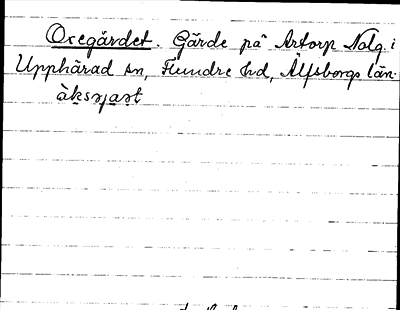 Oxegärdet. Gärde på Artorp Nolg. i
Upphärad sn, Flundre hd, Älfsborgs län.
àksɘjaɘt